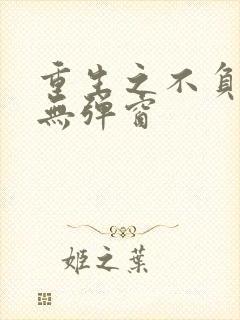 重生之不負
無彈窗
姬之葉